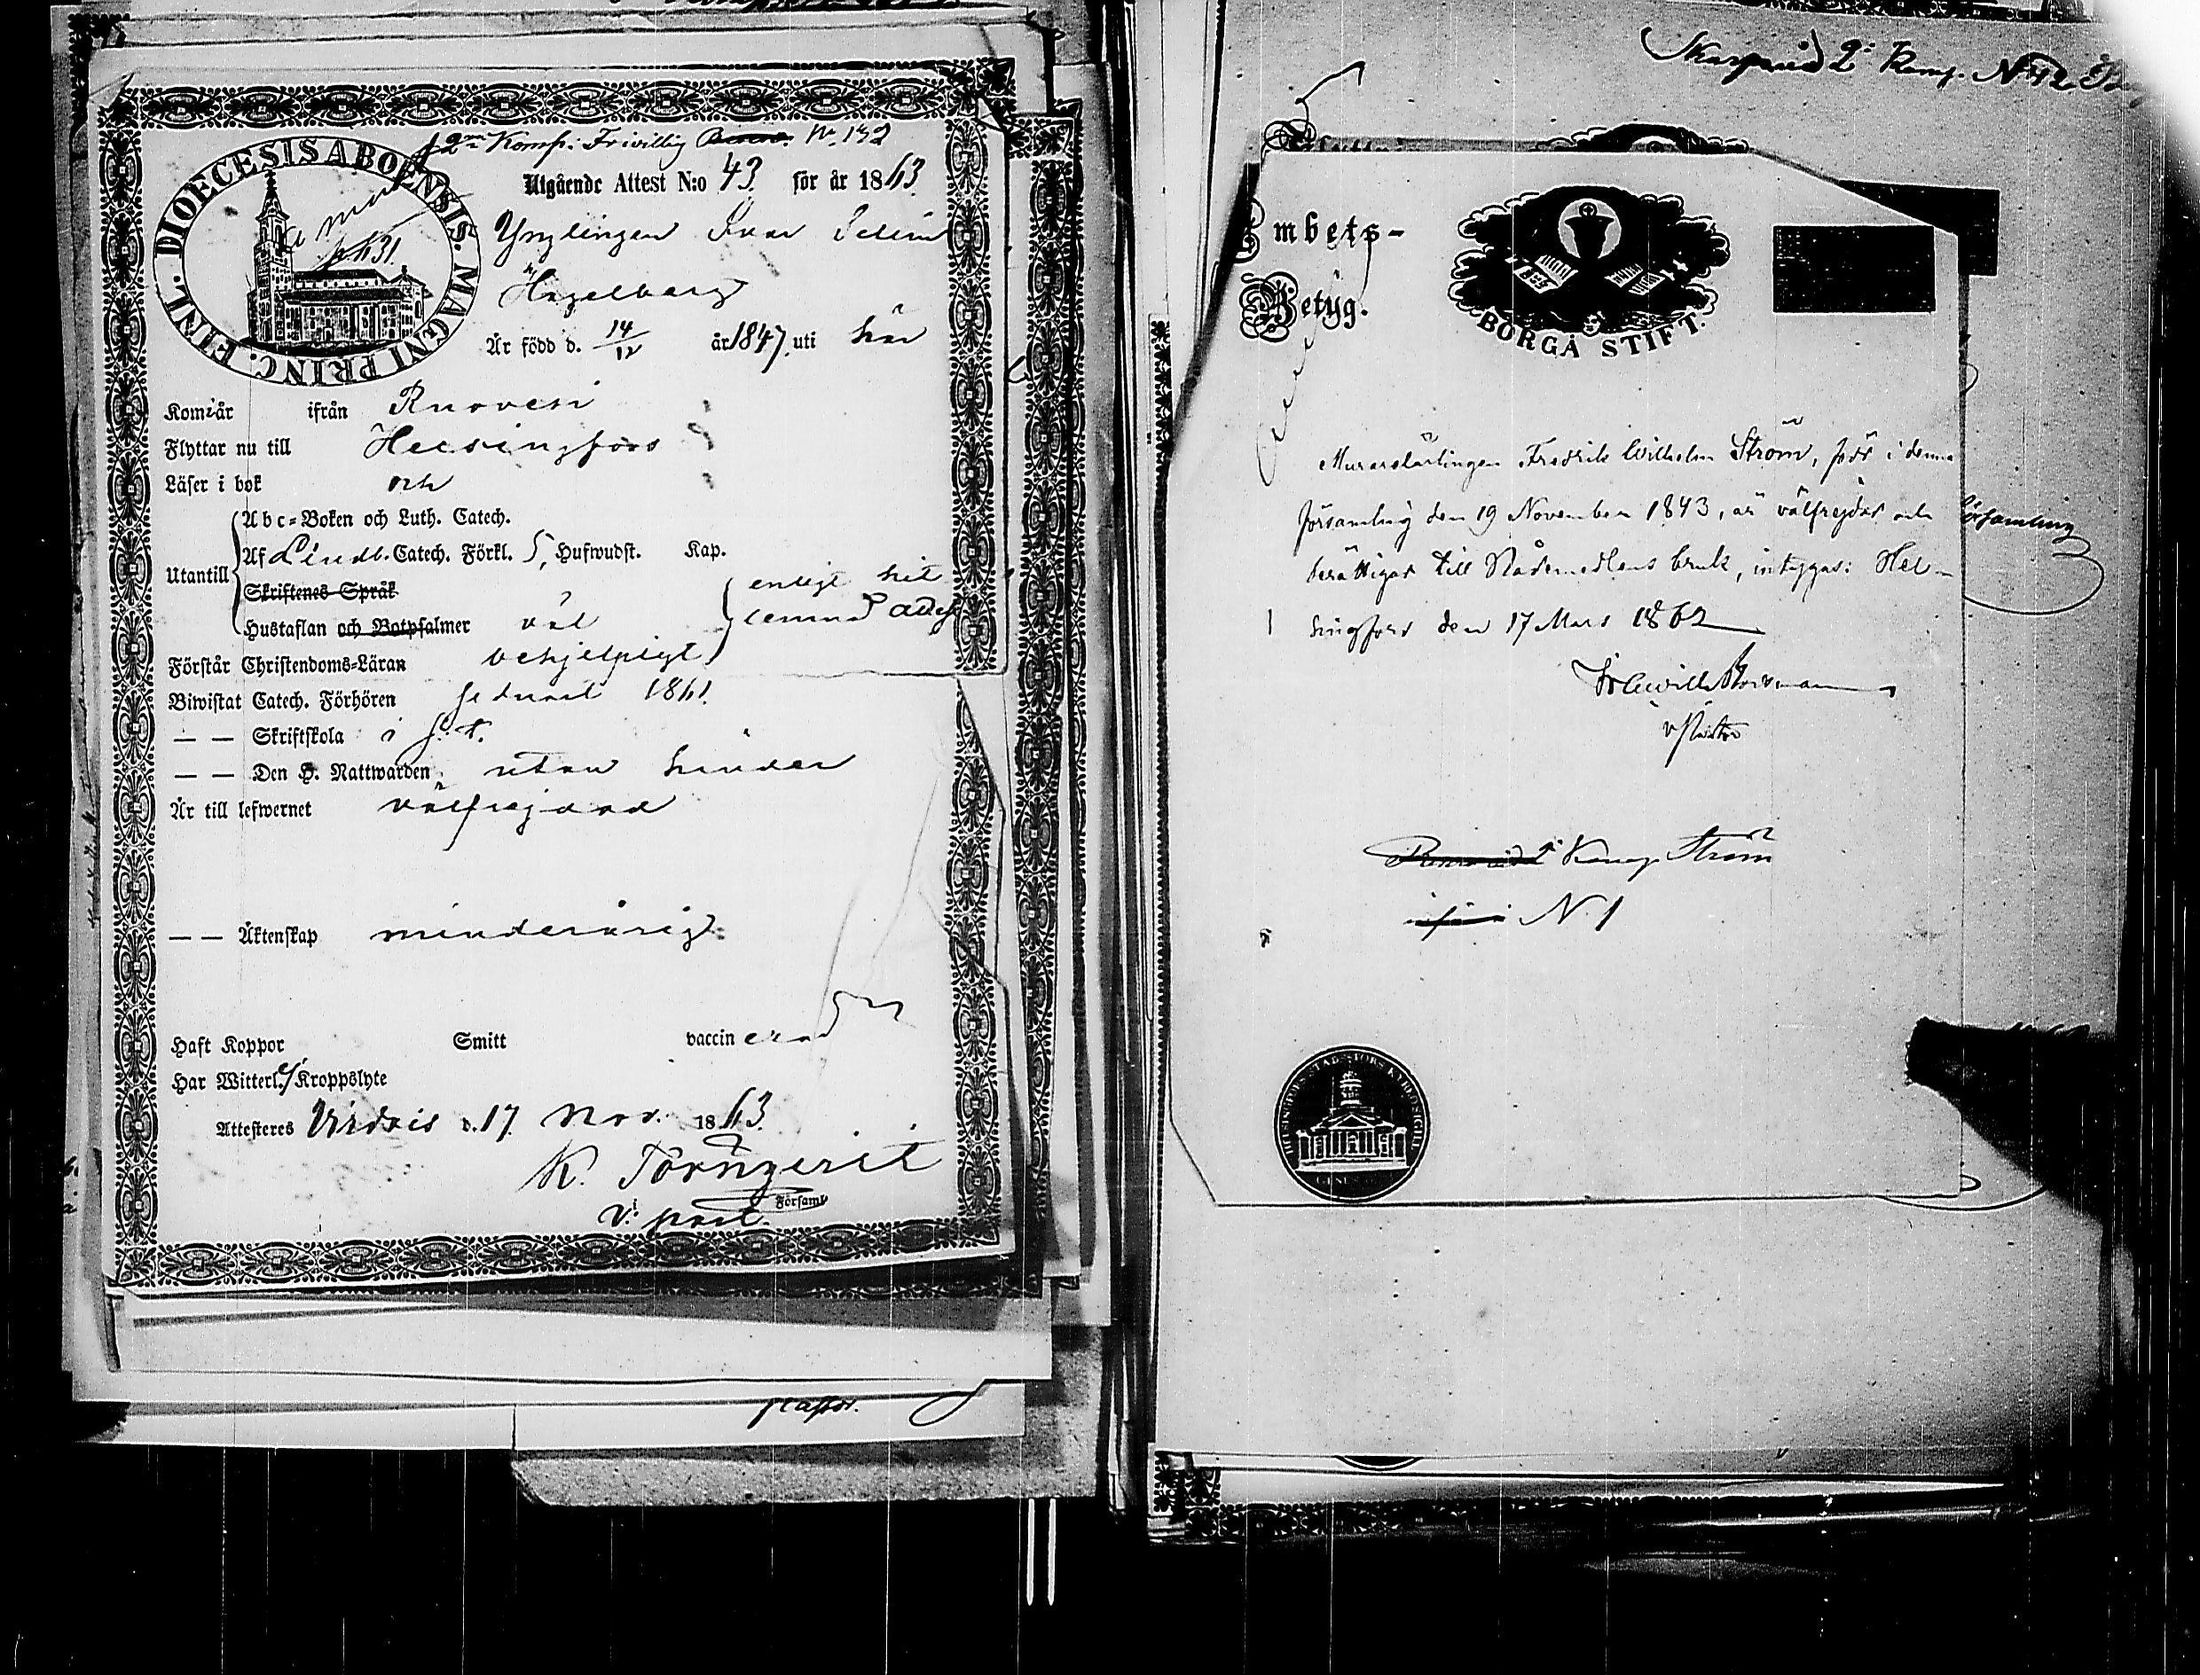 2n Komp. Frivillig No 132
DIOECESIS ABOENSIS. MAGNI PRINC. FINL.
Utgående Attest N:o 43 för år 1863
Ynglingen Ivar Selim
Hagelberg
Är född d. 14/12 år 1847. uti här
Kom i år ifrån Ruovesi
Flyttar nu till Helsingfors
Läser i bok
Abc-Boken och Luth. Catech.
Utantill Af Lindb. Catech. Förkl. 5, Hufwudst. Kap.
Skriftenes Språk enligt hit
Hustaflan och Botpsalmer väl lemnad
Förstår Christendoms-Läran behjelpligt
Biwistat Catech. Förhören sednast 1861.
— — Skriftskola i f. t.
— — Den H. Nattwarden utan hinder
Är till lefwernet välfrejdad
— — Äktenskap minderårig
Haft Koppor Smitt vaccinerad
Har Witterl. Kroppslyte
Attesteres Virdois d. 17 Nov. 1863.
K. Törnqvist
Församl
v. past.
2 Komp. No 12
Embets-
Betyg.
BORGÅ STIFT.
Murarelärlingen Fredrik Wilhelm Ström, född i denna
församling den 19 November 1843, är välfrejdad och
berättigad till Nådemedlens bruk, intygas: Hel-
singfors den 17 Mars 1862
v Pastor
församling
Komp. Ström
N. 1